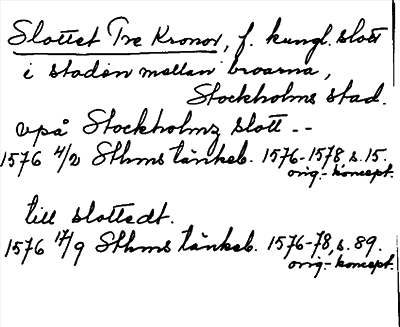 Slottet Tre Kronor, f. kungl. slott
i staden mellan broarna,
Stockholms stad.
vpå Stockholmz slott --
1576 4/2 Sthms tänkeb. 1576-1578, s. 15.
orig.-koncept.
till slottedt.
1576 17/9 Sthms tänkeb. 1576-78, s. 89.
orig.-koncept.